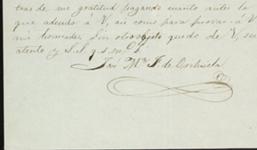 tras de mi gratitud pagando cuanto antes lo
que adeudo á V, asi como para provar á V
mi honradez. Sin otro objeto quedo de V, su
atento y S.S. q. s. m. b.
José Mª F. de